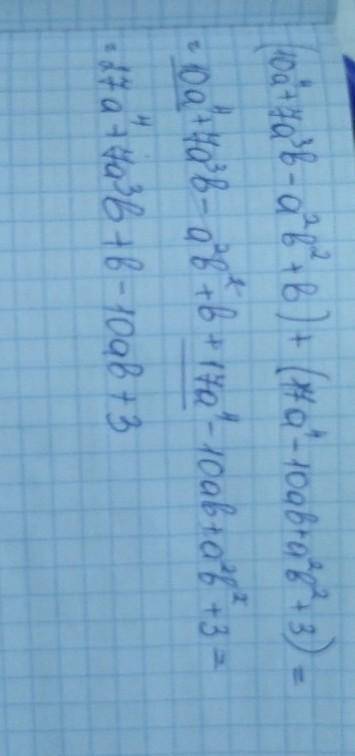 (10a⁴+7a³b-a²b²+b)+(7a⁴-10ab+a²b²+3)=
=10a⁴+7a³b-a²b²+b+17a⁴-10ab+a²b²+3=
=17a⁴+7a³b+b-10ab+3